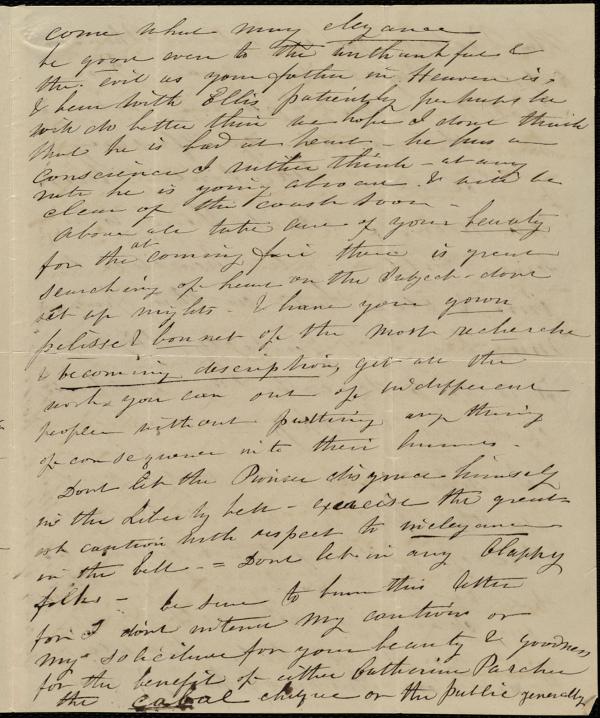 come what may elegance
be good even to the unthankful &
the evil as your father in Heaven is.
& bear with Ellis patiently perhaps he
will do better than we hope I dont think
that he is bad at heart - he has a
conscience I rather think - at any
rate he is going abroad & will be
clear of the coast soon -
Above all take care of your beauty
for the at coming fair there is great
searching of heart on the subject - dont
sit up nights - & have your gown
pelisse & bonnet of the most recherche
& becoming description, get all the
work you can out of indifferent
people without putting any thing
of consequence into their hands -
Dont let the Pioneer disgrace himself
in the Liberty bell - exercise the great-
est caution with respect to inelegance
in the bell - = Dont let in any
folks - be sure to burn this letter
for I dont intend my cautions or
my solicitude for your beauty & goodness
for the benefit of either Catherine Parker
the cabal clique or the public generally